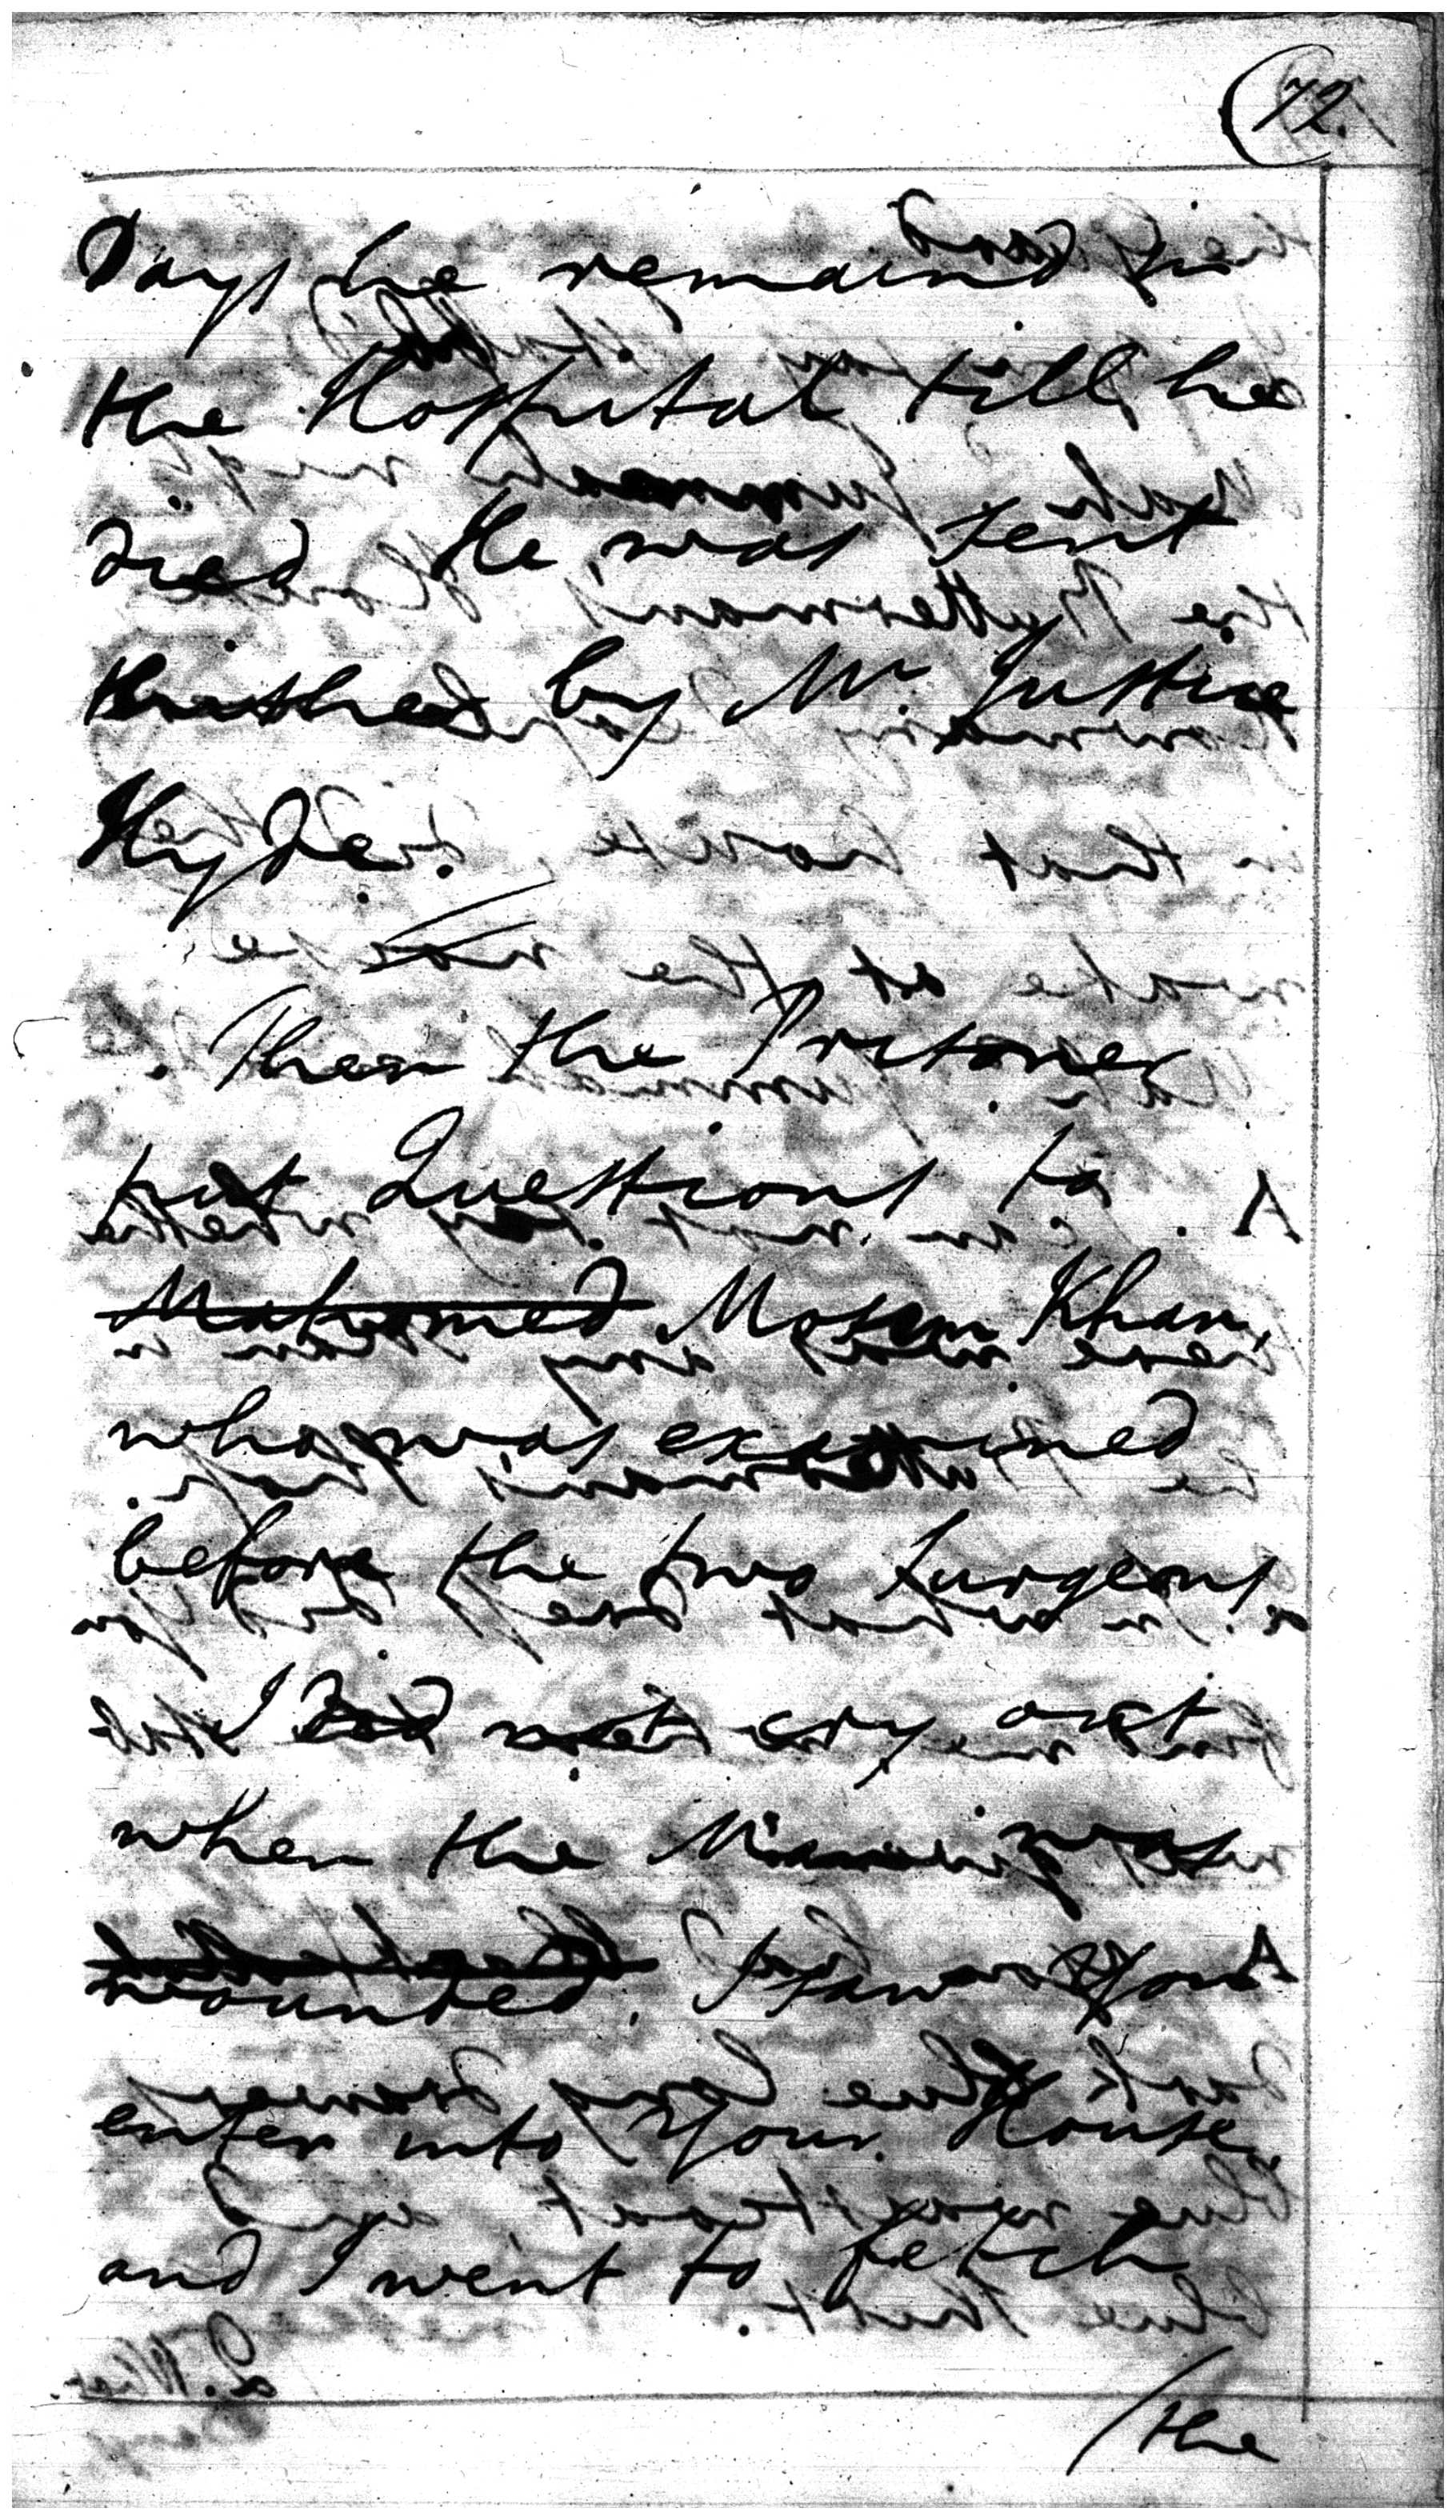 (72.
Days he remained in
the Hospital till he
died He was sent
thither by Mr. Justice
Hyde.
Then the Prisoner
put Questions to
Mahomed Mosem Khan,
who was examined
before the two Surgeons
I did not cry out
when the was
wounded. I saw You
enter into Your House,
and I went to fetch
/the